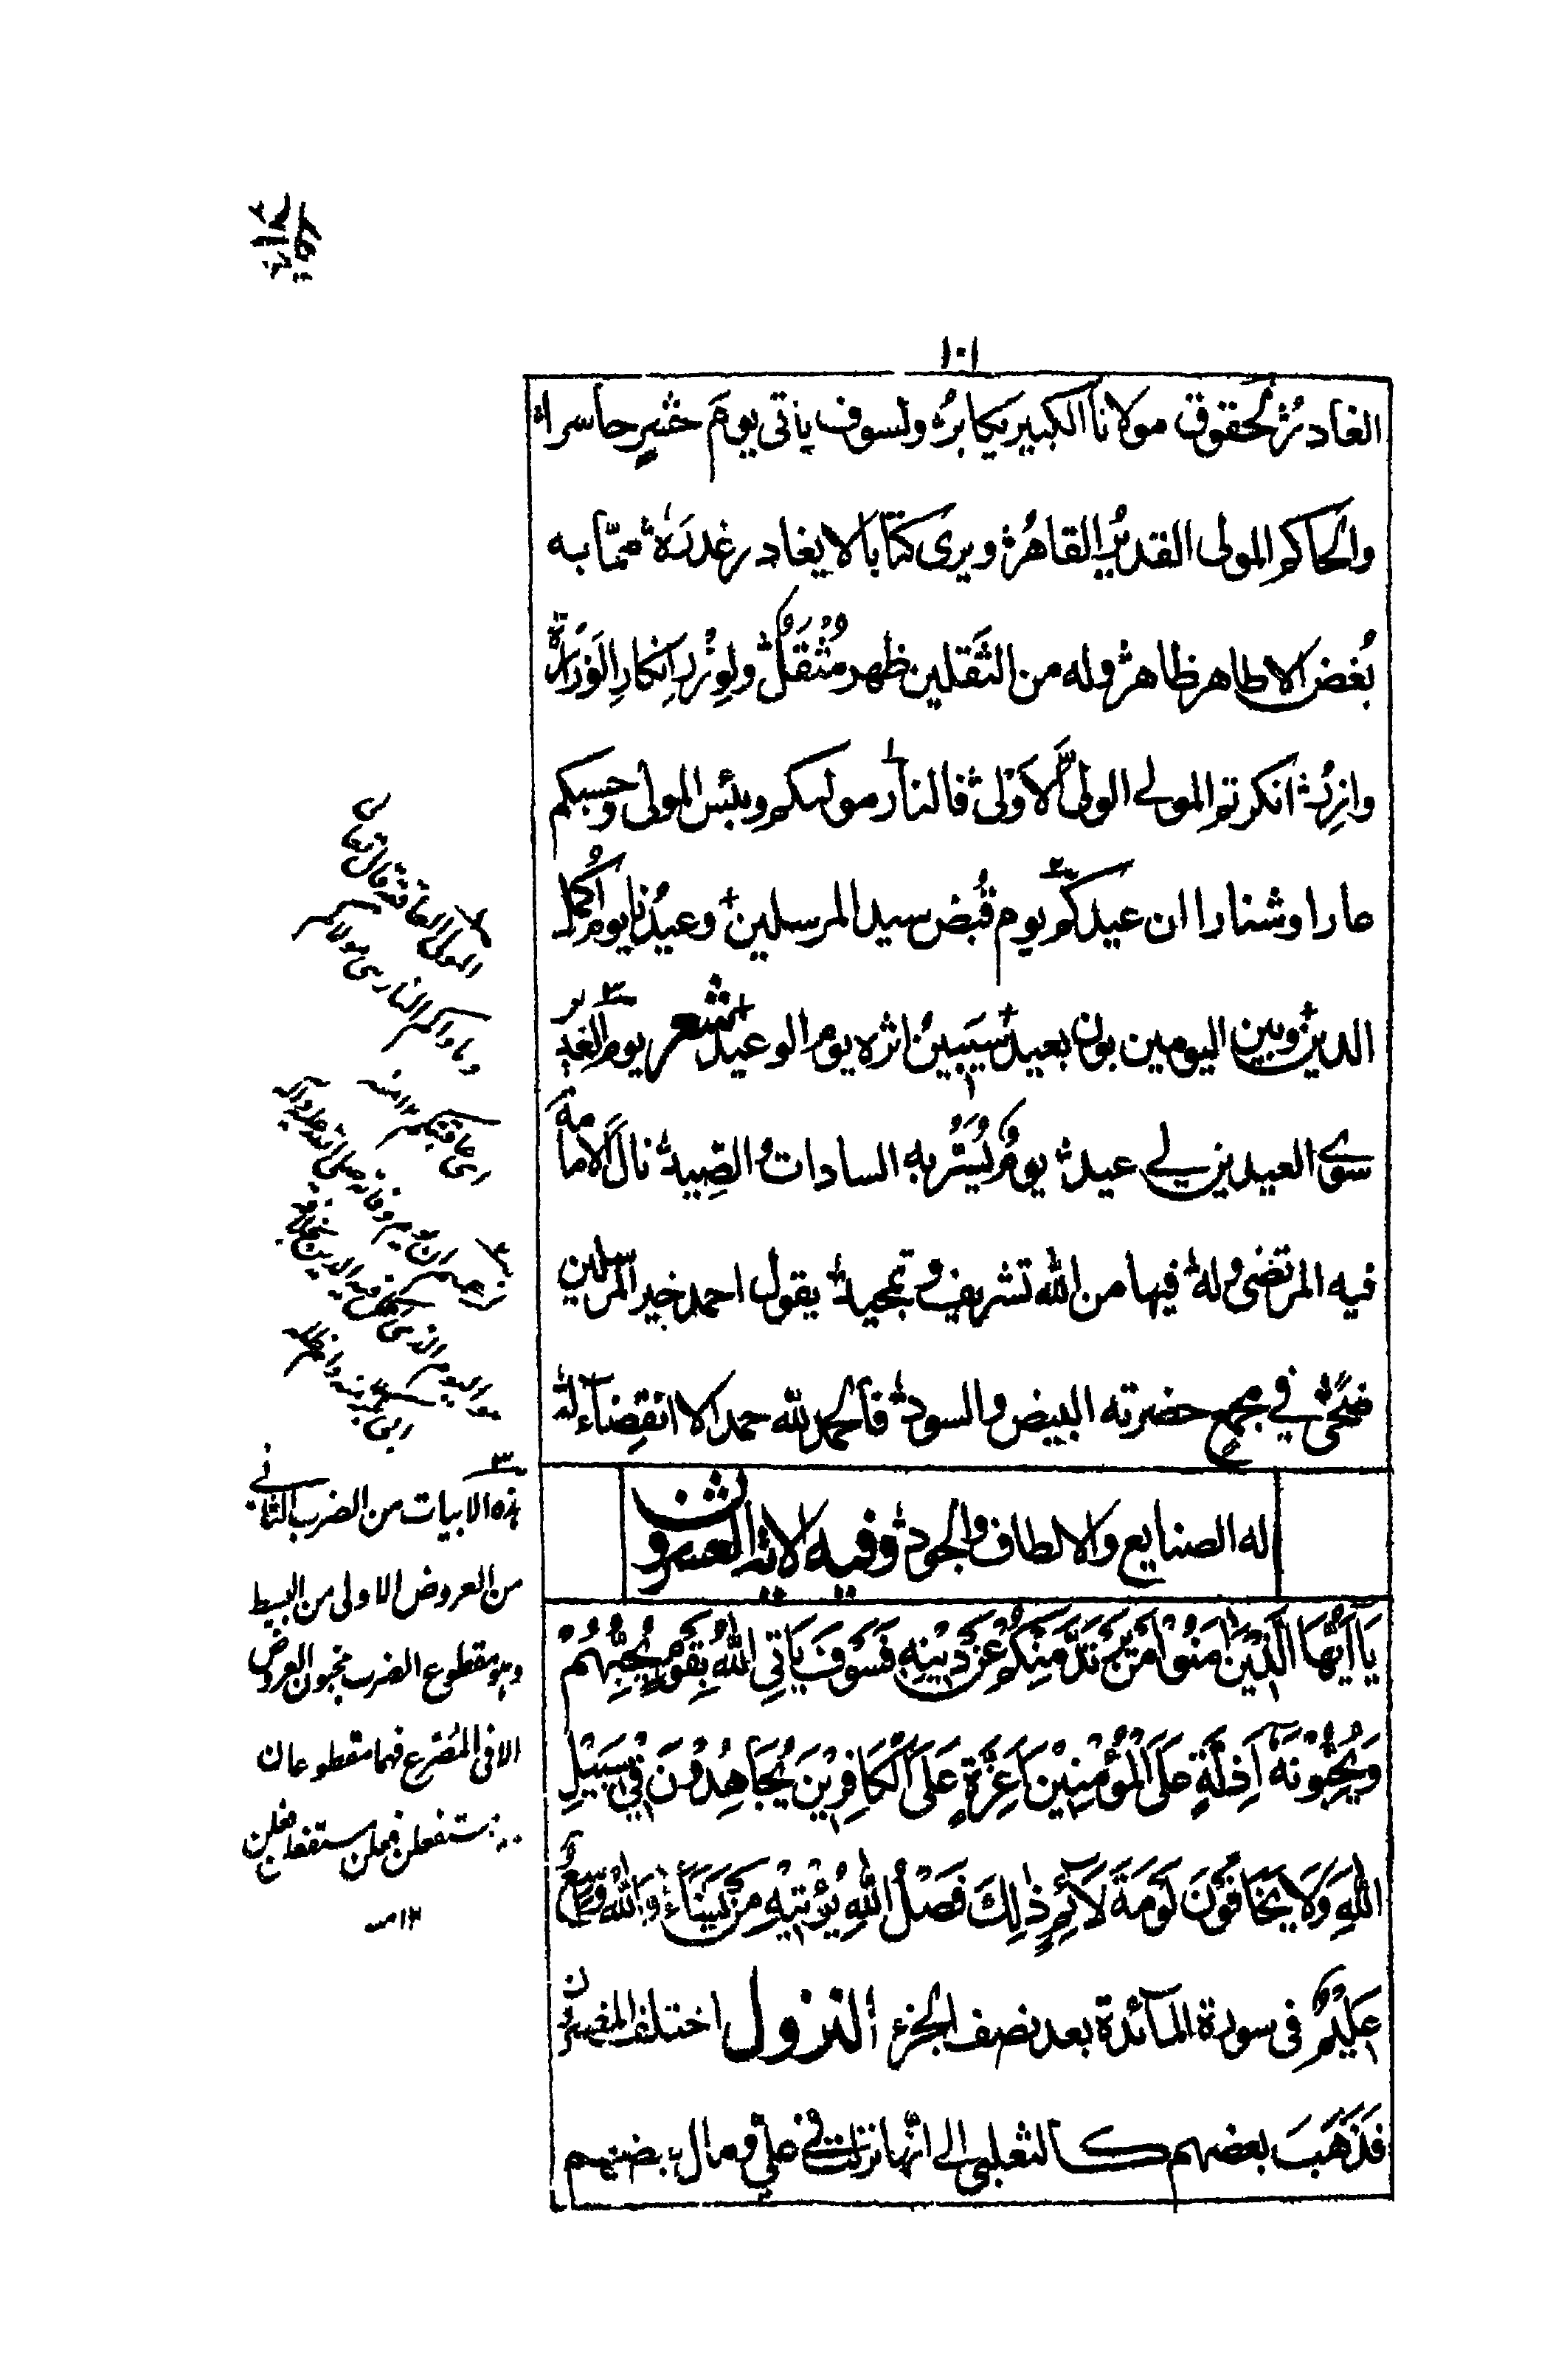 ١٠١
الغادرُ لحقوق مولانا الكبير يكابرُ ولسوف يأتي يومَ خسرٍ حاسرا
والحاكم المولى القديرُ القاهرُ ويرى كتابا لا يغادر غدرَهُ ممّا به
بُغض الاطاهر ظاهر وله من الثَّقلين ظهر مُثْقَلٌ ولوِزْرِ اِنكارِ الوَزَارَة
وازِرُ انكرتم المولى الوليَّ الاَوْلى فالنارُ مولىكم وبئس المولى وحسبكم
عارا وشنارا ان عيدكم يوم قُبض سيد المرسلين وعيدُنا يوم اُكمل
الدين وبين اليومين بون بعيد سَيَبينُ اثره يوم الوعيد شعر يوم الغدير
سوى العيدين لي عيد يومٌ يُسَرُّ به السادات والصِّيد نال الامامة
فيه المرتضى وله فيها من الله تشريف وتمجيد يقول احمد خير المرسلين
ضُحًى في مجمع حضرته البيض والسود فالحمد لله حمدا لا انقِضاء له
له الصنايع والالطاف والجود وفيه الاية العشرون
يَا اَيُّهَا الَّذِيْنَ اٰمَنُوْا مَنْ يَرْتَدَّ مِنْكُمْ عَنْ دِيْنِهٖ فَسَوْفَ يَاتِي اللهُ بِقَوْمٍ يُحِبُّهُمْ
وَيُحِبُّوْنَهٗ اَذِلَّةٍ عَلَى الْمُؤْمِنِيْنَ اَعِزَّةٍ عَلَى الْكَافِرِيْنَ يُجَاهِدُوْنَ فِيْ سَبِيْلِ
اللهِ وَلَا يَخَافُوْنَ لَوْمَةَ لَآئِمٍ ذٰلِكَ فَضْلُ اللهِ يُؤْتِيْهِ مَنْ يَشَآءُ وَاللهُ وَاسِعٌ
عَلِيْمٌ في سورة المآئدة بعد نصف الجزء النزول اختلف المفسرون
فَذَهَبَ بعضهم كالثعلبي الى انّها نزلت في عليّ ومال بعضهم
المولى العاقبة قال تعالى
وماواكم النار هي مولاكم
اي عاقبتكم ١٢ منه
٣
هذه الابيات من الضرب الثاني
من العروض الاولى من البسيط
وهو مقطوع الضرب مخبون العروض
الا في المصرع فهما مقطوعان
مستفعلن فعلن مستفعلن فعلن
١٢ منه